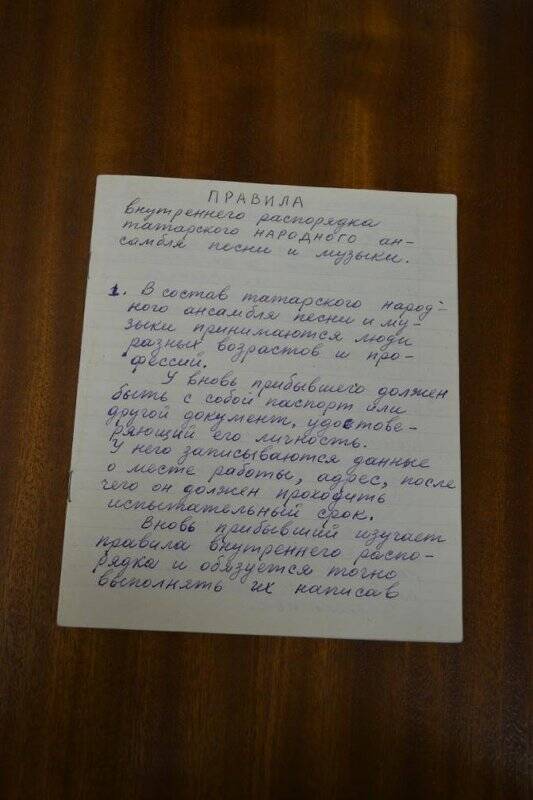 ПРАВИЛА
внутреннего распорядка
татарского НАРОДНОГО ан-
самбля песни и музыки.
1. В состав татарского народ-
ного ансамбля песни и му-
зыки принимаются люди
разных возрастов и про-
фессий.
У вновь прибывшего должен
быть с собой паспорт или
другой документ, удостове-
ряющий его личность.
У него записываются данные
о месте работы, адрес, после
чего он должен проходить
испытательный срок.
Вновь прибывший изучает
правила внутреннего распо-
рядка и обязуется точно
выполнять их написав